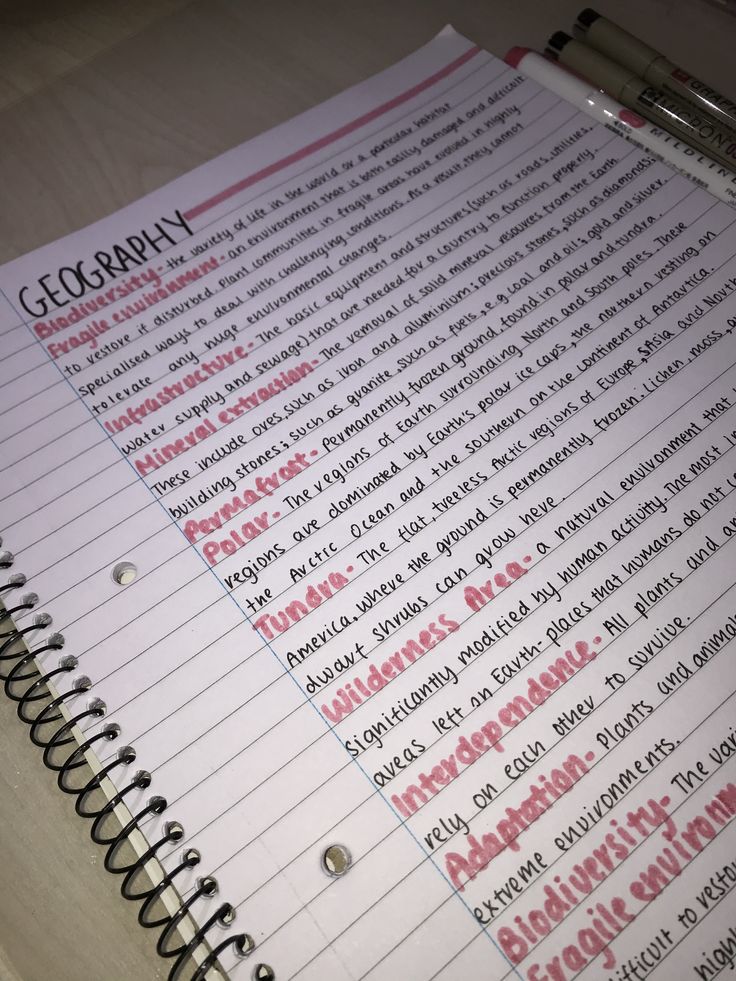 GEOGRAPHY
Biodiversity- the variety of life in the world or a particular habitat
Fragile environment- an environment that is both easily damaged and difficult
to restore it disturbed. Plant communities in fragile areas have evolved in highly
specialised ways to deal with challenging conditions. As a result, they cannot
tolerate any huge environmental changes.
Infrastructure- The basic equipment and structures (such as roads, utilities,
water supply and sewage) that are needed for a country to function properly.
Mineral extraction- The removal of solid mineral resources from the Earth
These include ores, such as iron and aluminium; precious stones, such as diamonds;
building stones; such as granite, such as fuels, e.g coal and oil; gold and silver.
Permafrost- Permanently frozen ground, found in polar and tundra.
Polar- The regions of Earth surrounding North and South poles. These
regions are dominated by Earth's polar ice caps, the northern resting on
the Arctic Ocean and the southern on the continent of Antartica.
Tundra- The flat, treeless Arctic regions of Europe, Asia and North
America, where the ground is permanently frozen. Lichen, moss,
dwarf shrubs can grow here.
Wilderness Area- a natural environment that
significantly modified by human activity. The most
areas left on Earth- places that humans do not
Interdependence- All plants and
rely on each other to survive.
Adaptation- Plants and animals
extreme environments.
Biodiversity- The
Fragile
difficult to
GRAPHIC
MICRON
MILDLINER